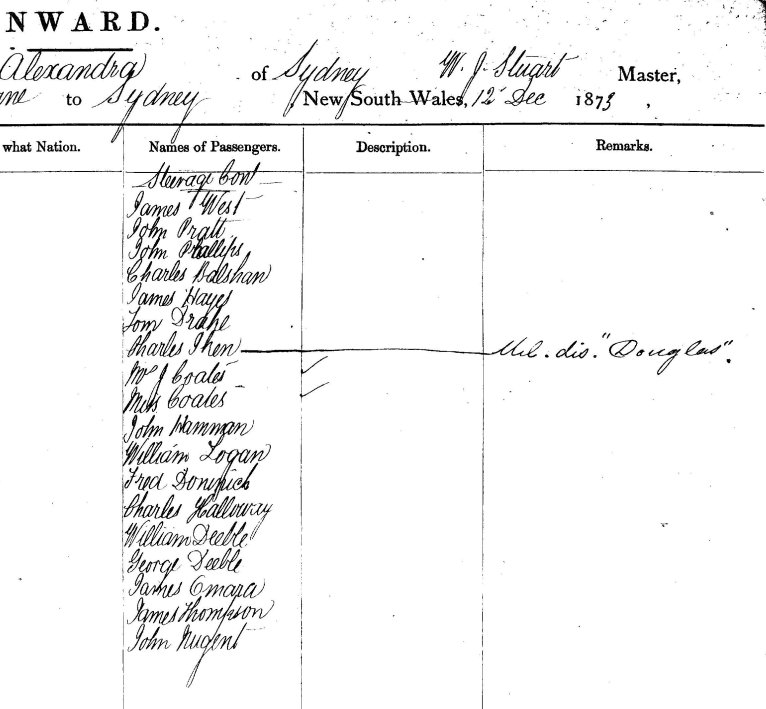 NWARD.
Alexandra of Sydney W. J. Stuart Master,
ane to Sydney, New South Wales, 12 Dec 1873,
what Nation. Names of Passengers. Description. Remarks.
Steerage Con
James West
John Pratt
John Phillips
Charles Balshan
James Hayes
Tom Drake
Charles "Douglas".
Mr J Coates
Coates
John Hamman
William Logan
Fred
Charles Halloway
William Deeble
George Deeble
James Omara
James Thompson
John Nugent